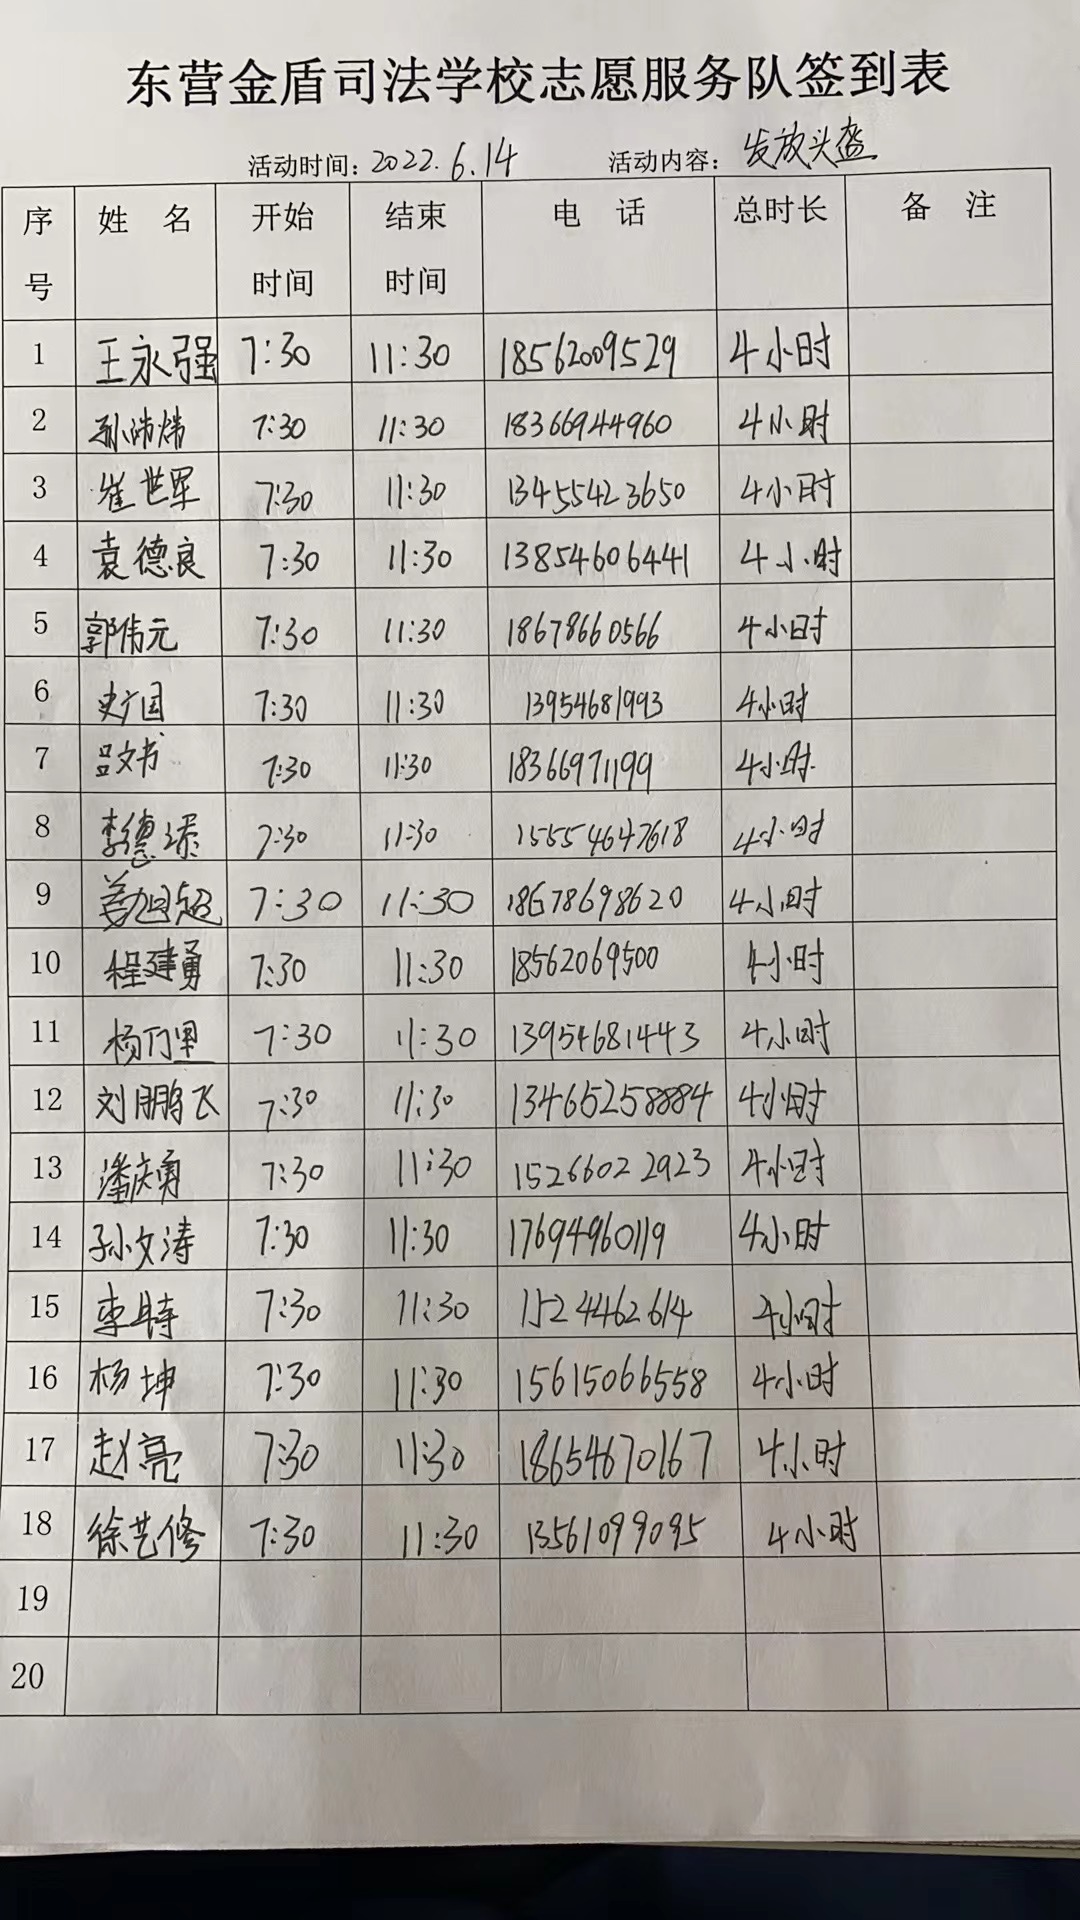 东营金盾司法学校志愿服务队签到表
活动时间：2022.6.14 活动内容：发放头盔
序号 姓 名 开始时间 结束时间 电 话 总时长 备 注
1 王永强 7:30 11:30 18562009529 4小时
2 孙炜 7:30 11:30 18366944960 4小时
3 崔世军 7:30 11:30 13455423650 4小时
4 袁德良 7:30 11:30 13854606441 4小时
5 郭伟元 7:30 11:30 18678660566 4小时
6 史广国 7:30 11:30 13954681993 4小时
7 吕文书 7:30 11:30 18366971199 4小时
8 李德 7:30 11:30 15554647618 4小时
9 姜旭超 7:30 11:30 18678698620 4小时
10 程建勇 7:30 11:30 18562069500 4小时
11 杨 7:30 11:30 13954681443 4小时
12 刘鹏飞 7:30 11:30 13465258884 4小时
13 潘庆勇 7:30 11:30 15266022923 4小时
14 孙文涛 7:30 11:30 17694960119 4小时
15 李 7:30 11:30 1524462614 4小时
16 杨坤 7:30 11:30 15615066558 4小时
17 赵亮 7:30 11:30 18654670167 4小时
18 徐艺修 7:30 11:30 13561099095 4小时
19
20